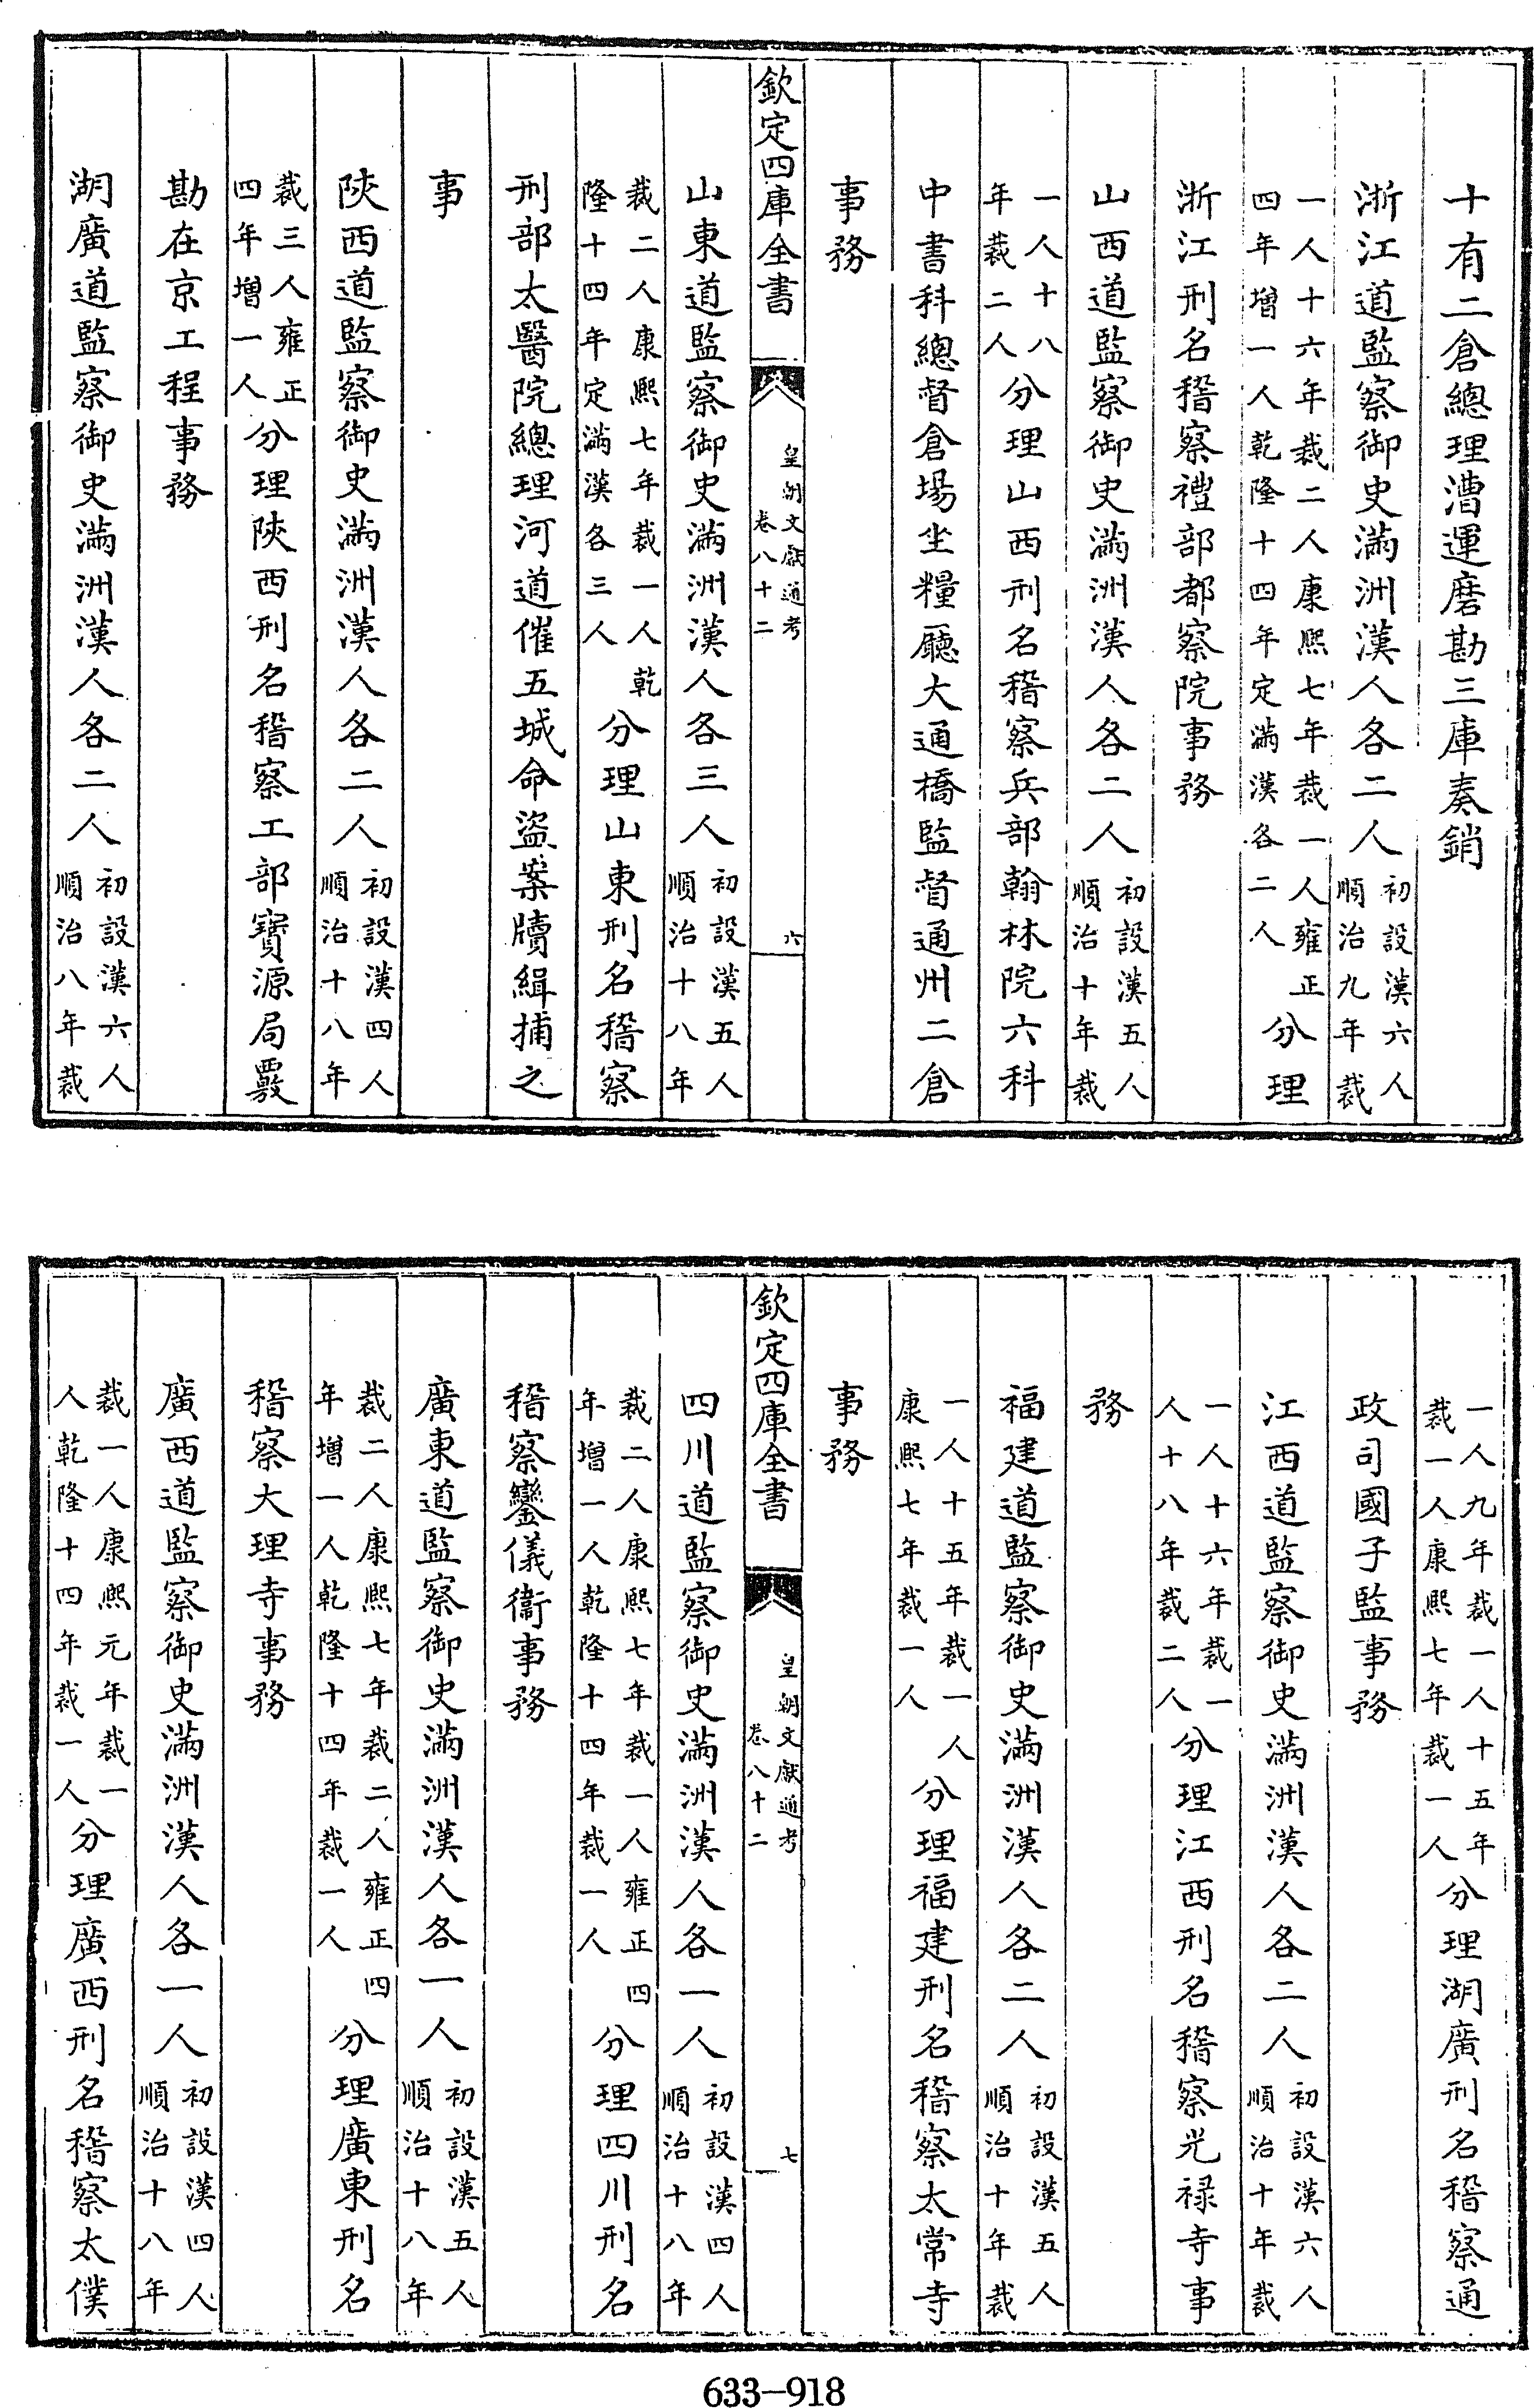 十有二倉總理漕運磨勘三庫奏銷
浙江道監察御史滿洲漢人各二人初設漢六人順治九年裁
一人十六年裁二人康熙七年裁一人雍正四年增一人乾隆十四年定滿漢各二人分理
浙江刑名稽察禮部都察院事務
山西道監察御史滿洲漢人各二人初設漢五人順治十年裁
一人十八年裁二人分理山西刑名稽察兵部翰林院六科
中書科總督倉場坐糧廳大通橋監督通州二倉
事務
欽定四庫全書
皇朝文獻通考
卷八十二
六
山東道監察御史滿洲漢人各三人初設漢五人順治十八年
裁二人康熙七年裁一人乾隆十四年定滿漢各三人分理山東刑名稽察
刑部太醫院總理河道催五城命盜案牘緝捕之
事
陜西道監察御史滿洲漢人各二人初設漢四人順治十八年
裁三人雍正四年增一人分理陜西刑名稽察工部寶源局覈
勘在京工程事務
湖廣道監察御史滿洲漢人各二人初設漢六人順治八年裁
一人九年裁一人十五年裁一人康熙七年裁一人分理湖廣刑名稽察通
政司國子監事務
江西道監察御史滿洲漢人各二人初設漢六人順治十年裁
一人十六年裁一人十八年裁二人分理江西刑名稽察光禄寺事
務
福建道監察御史滿洲漢人各二人初設漢五人順治十年裁
一人十五年裁一人康熙七年裁一人分理福建刑名稽察太常寺
事務
欽定四庫全書
皇朝文獻通考
卷八十二
七
四川道監察御史滿洲漢人各一人初設漢四人順治十八年
裁二人康熙七年裁一人雍正四年增一人乾隆十四年裁一人分理四川刑名
稽察鑾儀衞事務
廣東道監察御史滿洲漢人各一人初設漢五人順治十八年
裁二人康熙七年裁二人雍正四年增一人乾隆十四年裁一人分理廣東刑名
稽察大理寺事務
廣西道監察御史滿洲漢人各一人初設漢四人順治十八年
裁一人康熙元年裁一人乾隆十四年裁一人分理廣西刑名稽察太僕
633-918